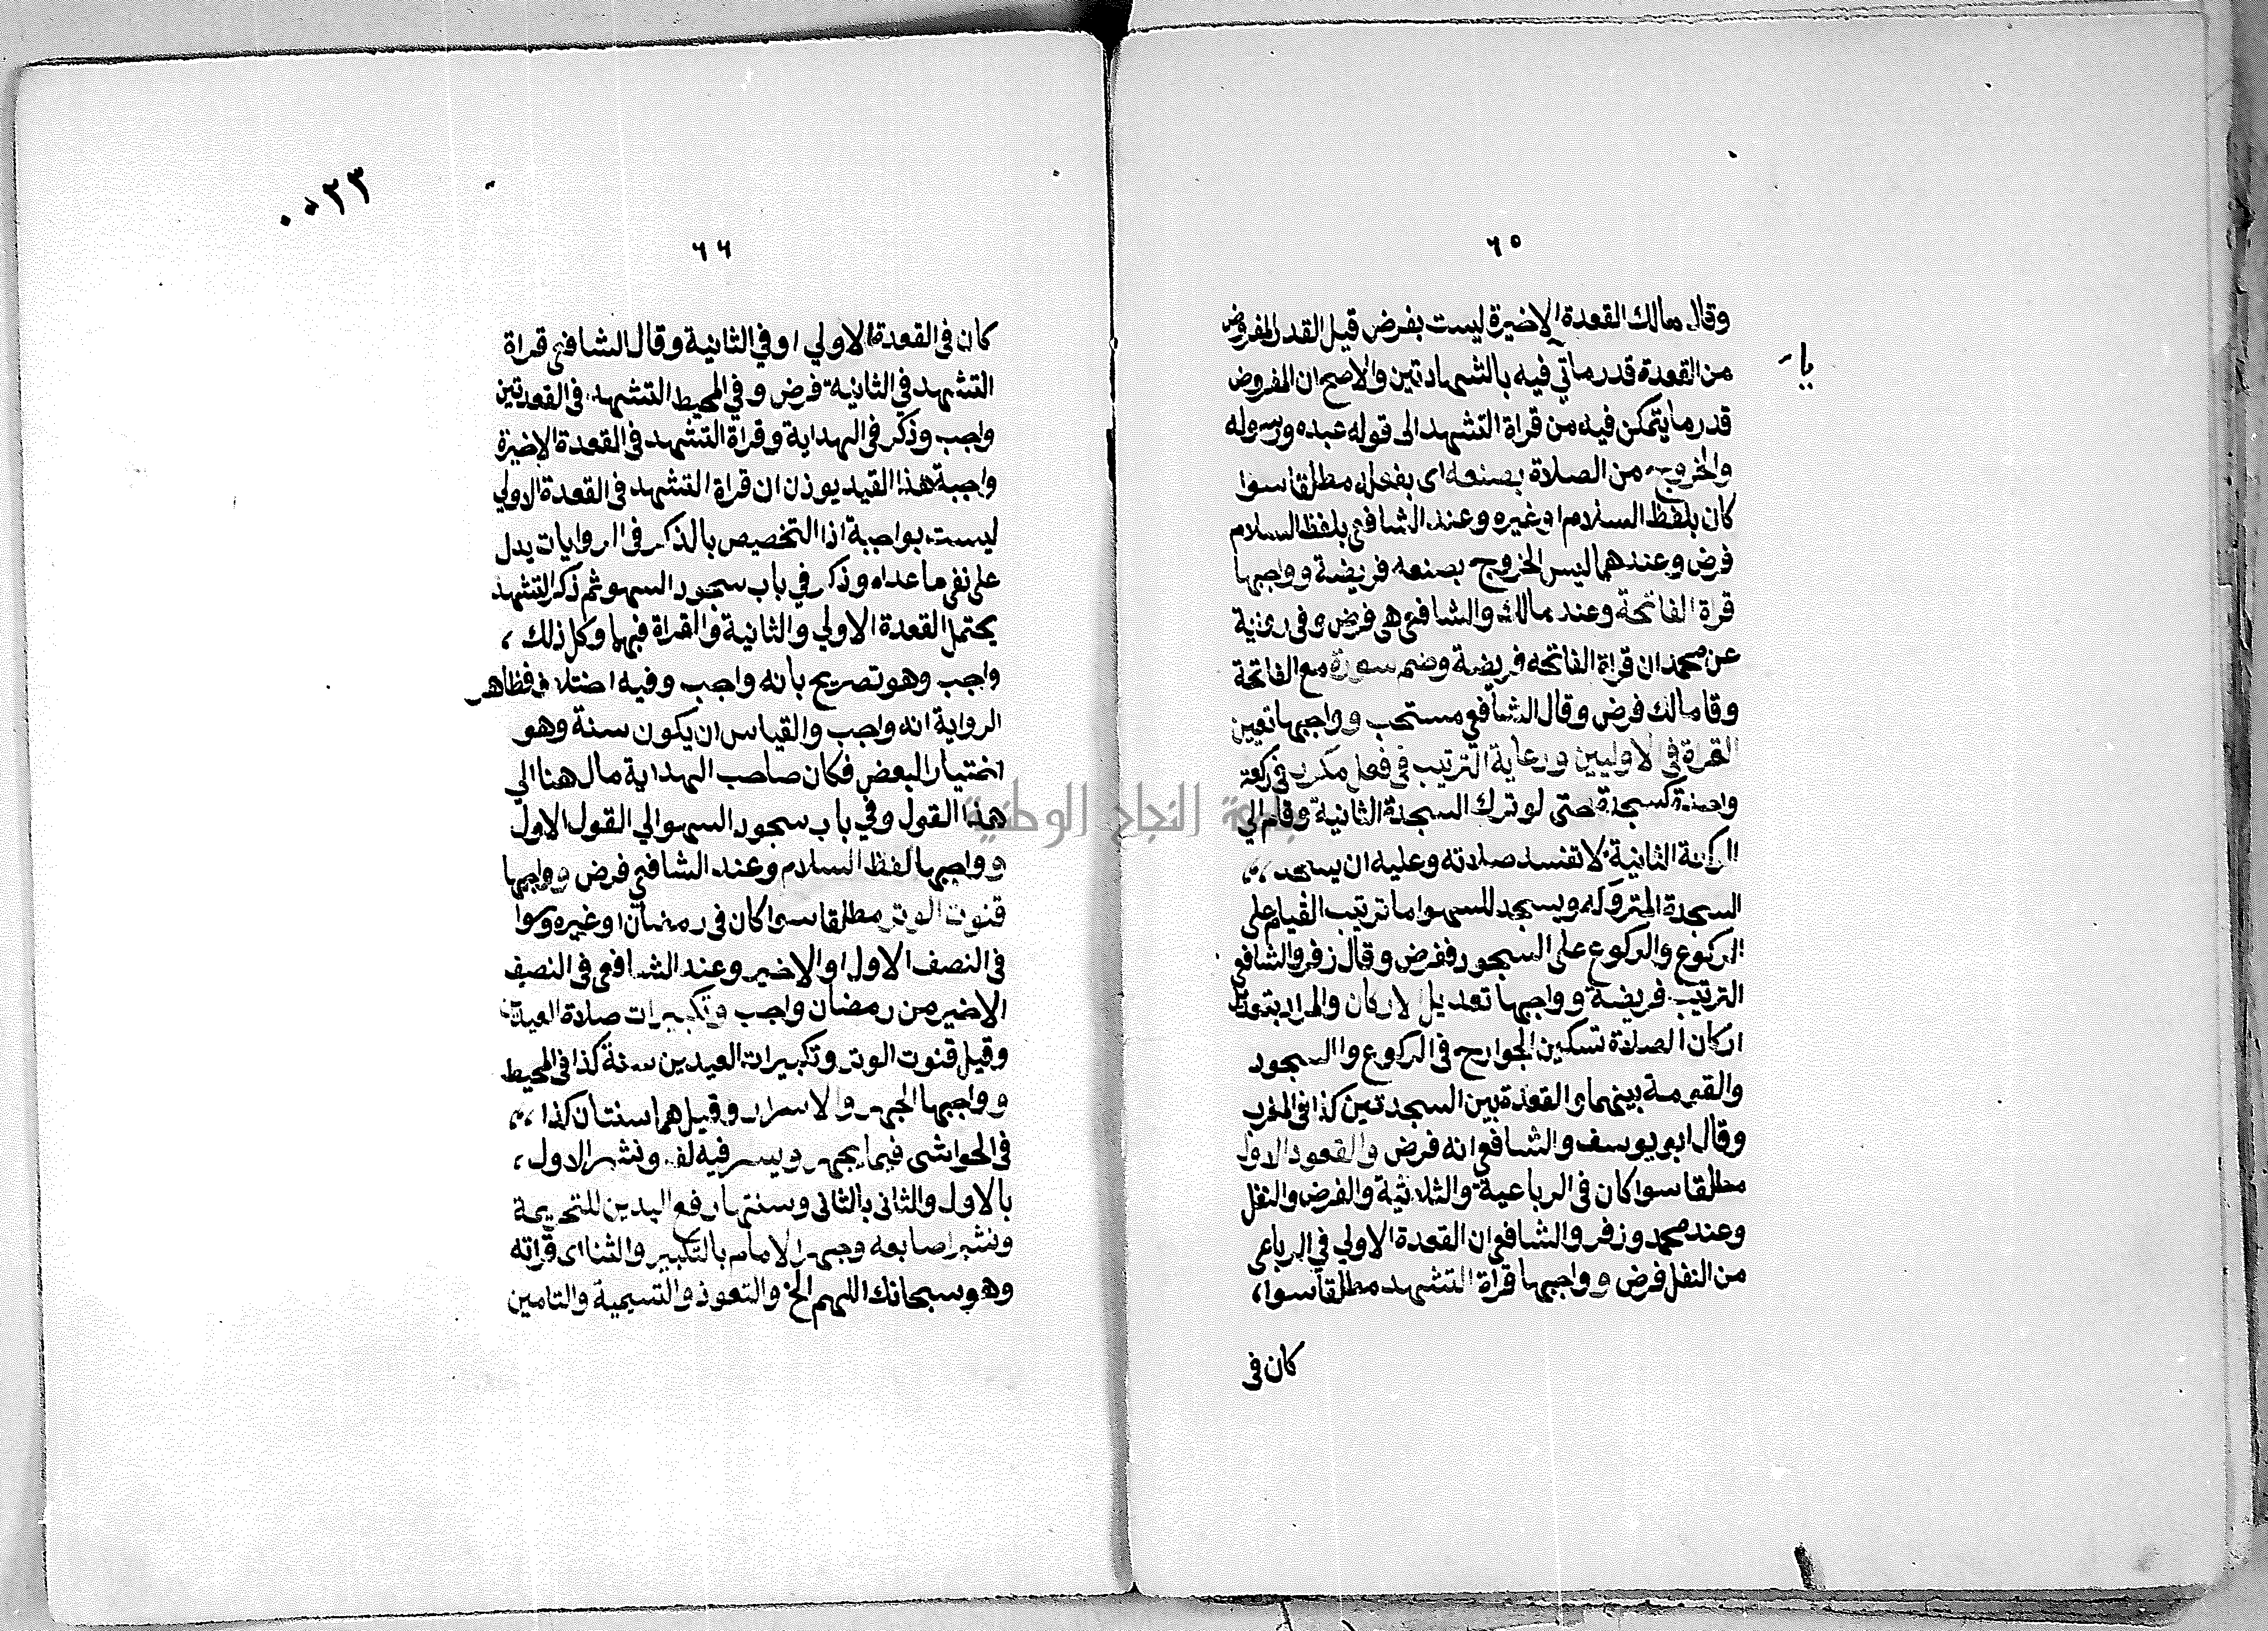 ٦٥
وقال مالك القعدة الاخيرة ليست بفرض قيل القدر المفروض
من القعدة قدر ما تي فيه بالشهادتين والاصح ان المفروض
قدر ما يتمكن فيه من قراة التشهد الى قوله عبده ورسوله
والخروج من الصلاة بصنعه اى بفعله مطلقا سوا
كان بلفظ السلام او غيره وعند الشافعي بلفظ السلام
فرض وعندهما ليس الخروج بصنعه فريضة وواجبها
قراة الفاتحة وعند مالك والشافعي هى فرض وفى رواية
عن محمد ان قراة الفاتحه فريضة وضم سورة مع الفاتحة
وقا مالك فرض وقال الشافعي مستحب وواجبها تعيين
القراة فى الاوليين ورعاية الترتيب فى فعل مكرر فى ركعة
واحدة كسجدة حتى لو ترك السجدة الثانية وقام الي
الركعة الثانية لا تفسد صلاته وعليه ان يسجد ،،
السجدة المتروكه ويسجد للسهو اما ترتيب القيام على
الركوع والركوع على السجود ففرض وقال زفر والشافعي
الترتيب فريضة وواجبها تعديل الاركان والمراد بتعديل
اركان الصلاة تسكين الجوارح فى الركوع والسجود
والقومة بينهما والقعدة بين السجدتين كذا فى المغرب
وقال ابو يوسف والشافعي انه فرض والقعود الاول
مطلقا سوا كان فى الرباعية والثلاثية والفرض والنفل
وعند محمد وزفر والشافعي ان القعدة الاولي في الرباعى
من النفل فرض وواجبها قراة التشهد مطلقا سوا،
كان فى
٠٠٢٣
٦٦
كان فى القعدة الاولي او في الثانية وقال الشافعي قراة
التشهد في الثانية فرض وفي المحيط التشهد فى القعدتين
واجب وذكر فى الهداية وقراة التشهد فى القعدة الاخيرة
واجبة هذا القيد يوذن ان قراة التشهد فى القعدة الاولي
ليست بواجبة اذا التخصيص بالذكر فى الروايات يدل
على نفى ما عداه وذكر في باب سجود السهو ثم ذكر التشهد
يحتمل القعدة الاولي والثانية والقراة فيها وكل ذلك ،
واجب وهو تصريح بانه واجب وفيه اختلاف فظاهر
الرواية انه واجب والقياس ان يكون سنة وهو
اختيار البعض فكان صاحب الهداية مال هنا الي
هذا القول وفي باب سجود السهو الي القول الاول
وواجبها لفظ السلام وعند الشافعي فرض وواجبها
قنوت الوتر مطلقا سوا كان فى رمضان او غيره وسوا
فى النصف الاول او الاخير وعند الشافعي فى النصف
الاخير من رمضان واجب وتكبيرات صلاة العيدين
وقيل قنوت الوتر وتكبيرات العيدين سنة كذا فى المحيط
وواجبها الجهر والاسرار وقيل هما سنتان كذا ،،
فى الحواشى فيما يجهر ويسر فيه لف ونشر الاول ،
بالاول والثانى بالثانى وسنتها رفع اليدين للتحريمة
ونشر اصابعه وجهر الامام بالتكبير والثنا اى قراته
وهو سبحانك اللهم الخ والتعوذ والتسمية والتامين
جامعة النجاح الوطنية